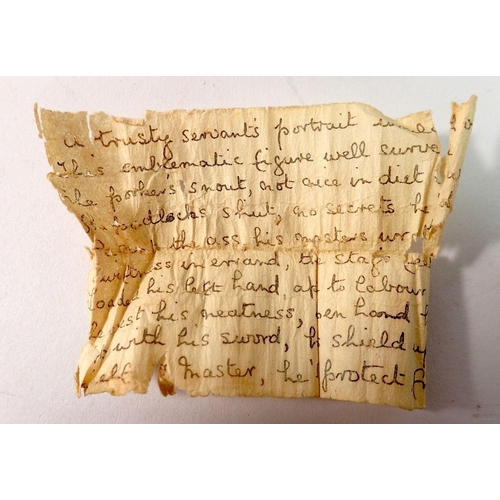 a trusty servant's portrait
this emblematic figure well survey
the porker's snout, not nice in diet
padlocks shut, no secrets he'll
the ass, his masters
swiftness in errand, the stag's feet
loaded his left hand, apt to labour
his neatness, open hand
with his sword, his shield
self & Master, he'll protect